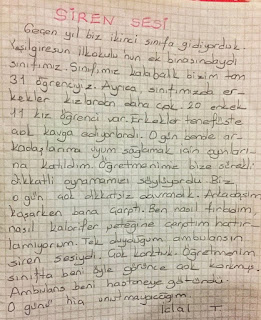 SİREN SESİ
Geçen yıl biz ikinci sınıfa gidiyorduk.
Yeşilgiresun ilkokulu'nun ek binasındaydı
sınıfımız. Sınıfımız kalabalık bizim tam
31 öğrenciyiz. Ayrıca, sınıfımızda er-
kekler kızlardan daha çok. 20 erkek
11 kız öğrenci var. Erkekler teneffüste
çok kavga ediyorlardı. O gün bende ar-
kadaşlarıma uyum sağlamak için oyunları-
na katıldım. Öğretmenimiz bize sürekli
dikkatli oynamamızı söylüyordu. Biz
o gün çok dikkatsiz davrandık. Arkadaşım
kaçarken bana çarptı. Ben nasıl fırladım,
nasıl kalorifer peteğine çarptım hatır-
lamıyorum. Tek duyduğum ambulansın
siren sesiydi. Çok korktuk. Öğretmenim
sınıfta beni öyle görünce çok korkmuş.
Ambulans beni hastaneye götürdü.
O günü hiç unutmayacağım.
İclal T